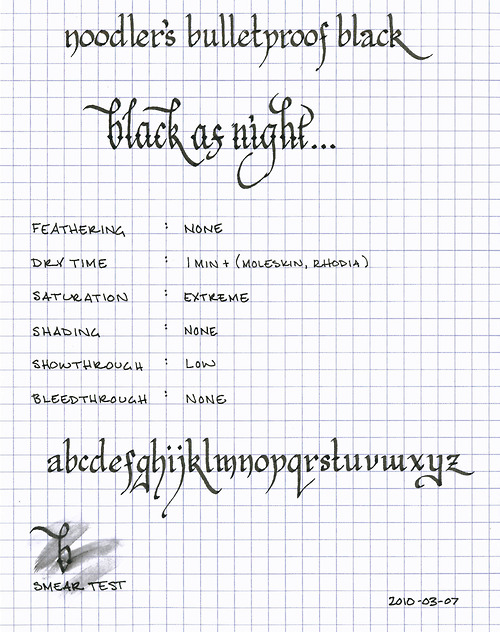 noodler's bulletproof black
black as night...
FEATHERING : NONE
DRY TIME : 1 MIN + (MOLESKIN, RHODIA)
SATURATION : EXTREME
SHADING : NONE
SHOWTHROUGH : LOW
BLEEDTHROUGH : NONE
abcdefghijklmnopqrstuvwxyz
b
SMEAR TEST
2010-03-07